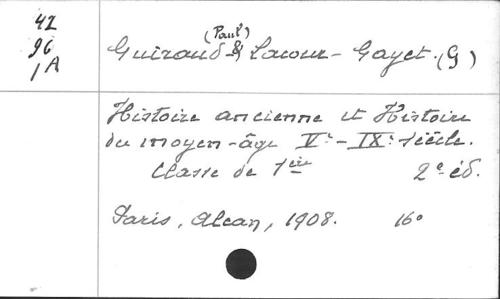 42
96
1A
(Paul)
Guiraud & Lacour-Gayet. (G)
Histoire ancienne et Histoire
du moyen-âge Ve-IXe siècle.
Classe de 1ère 2e éd.
Paris, Alcan, 1908. 16o